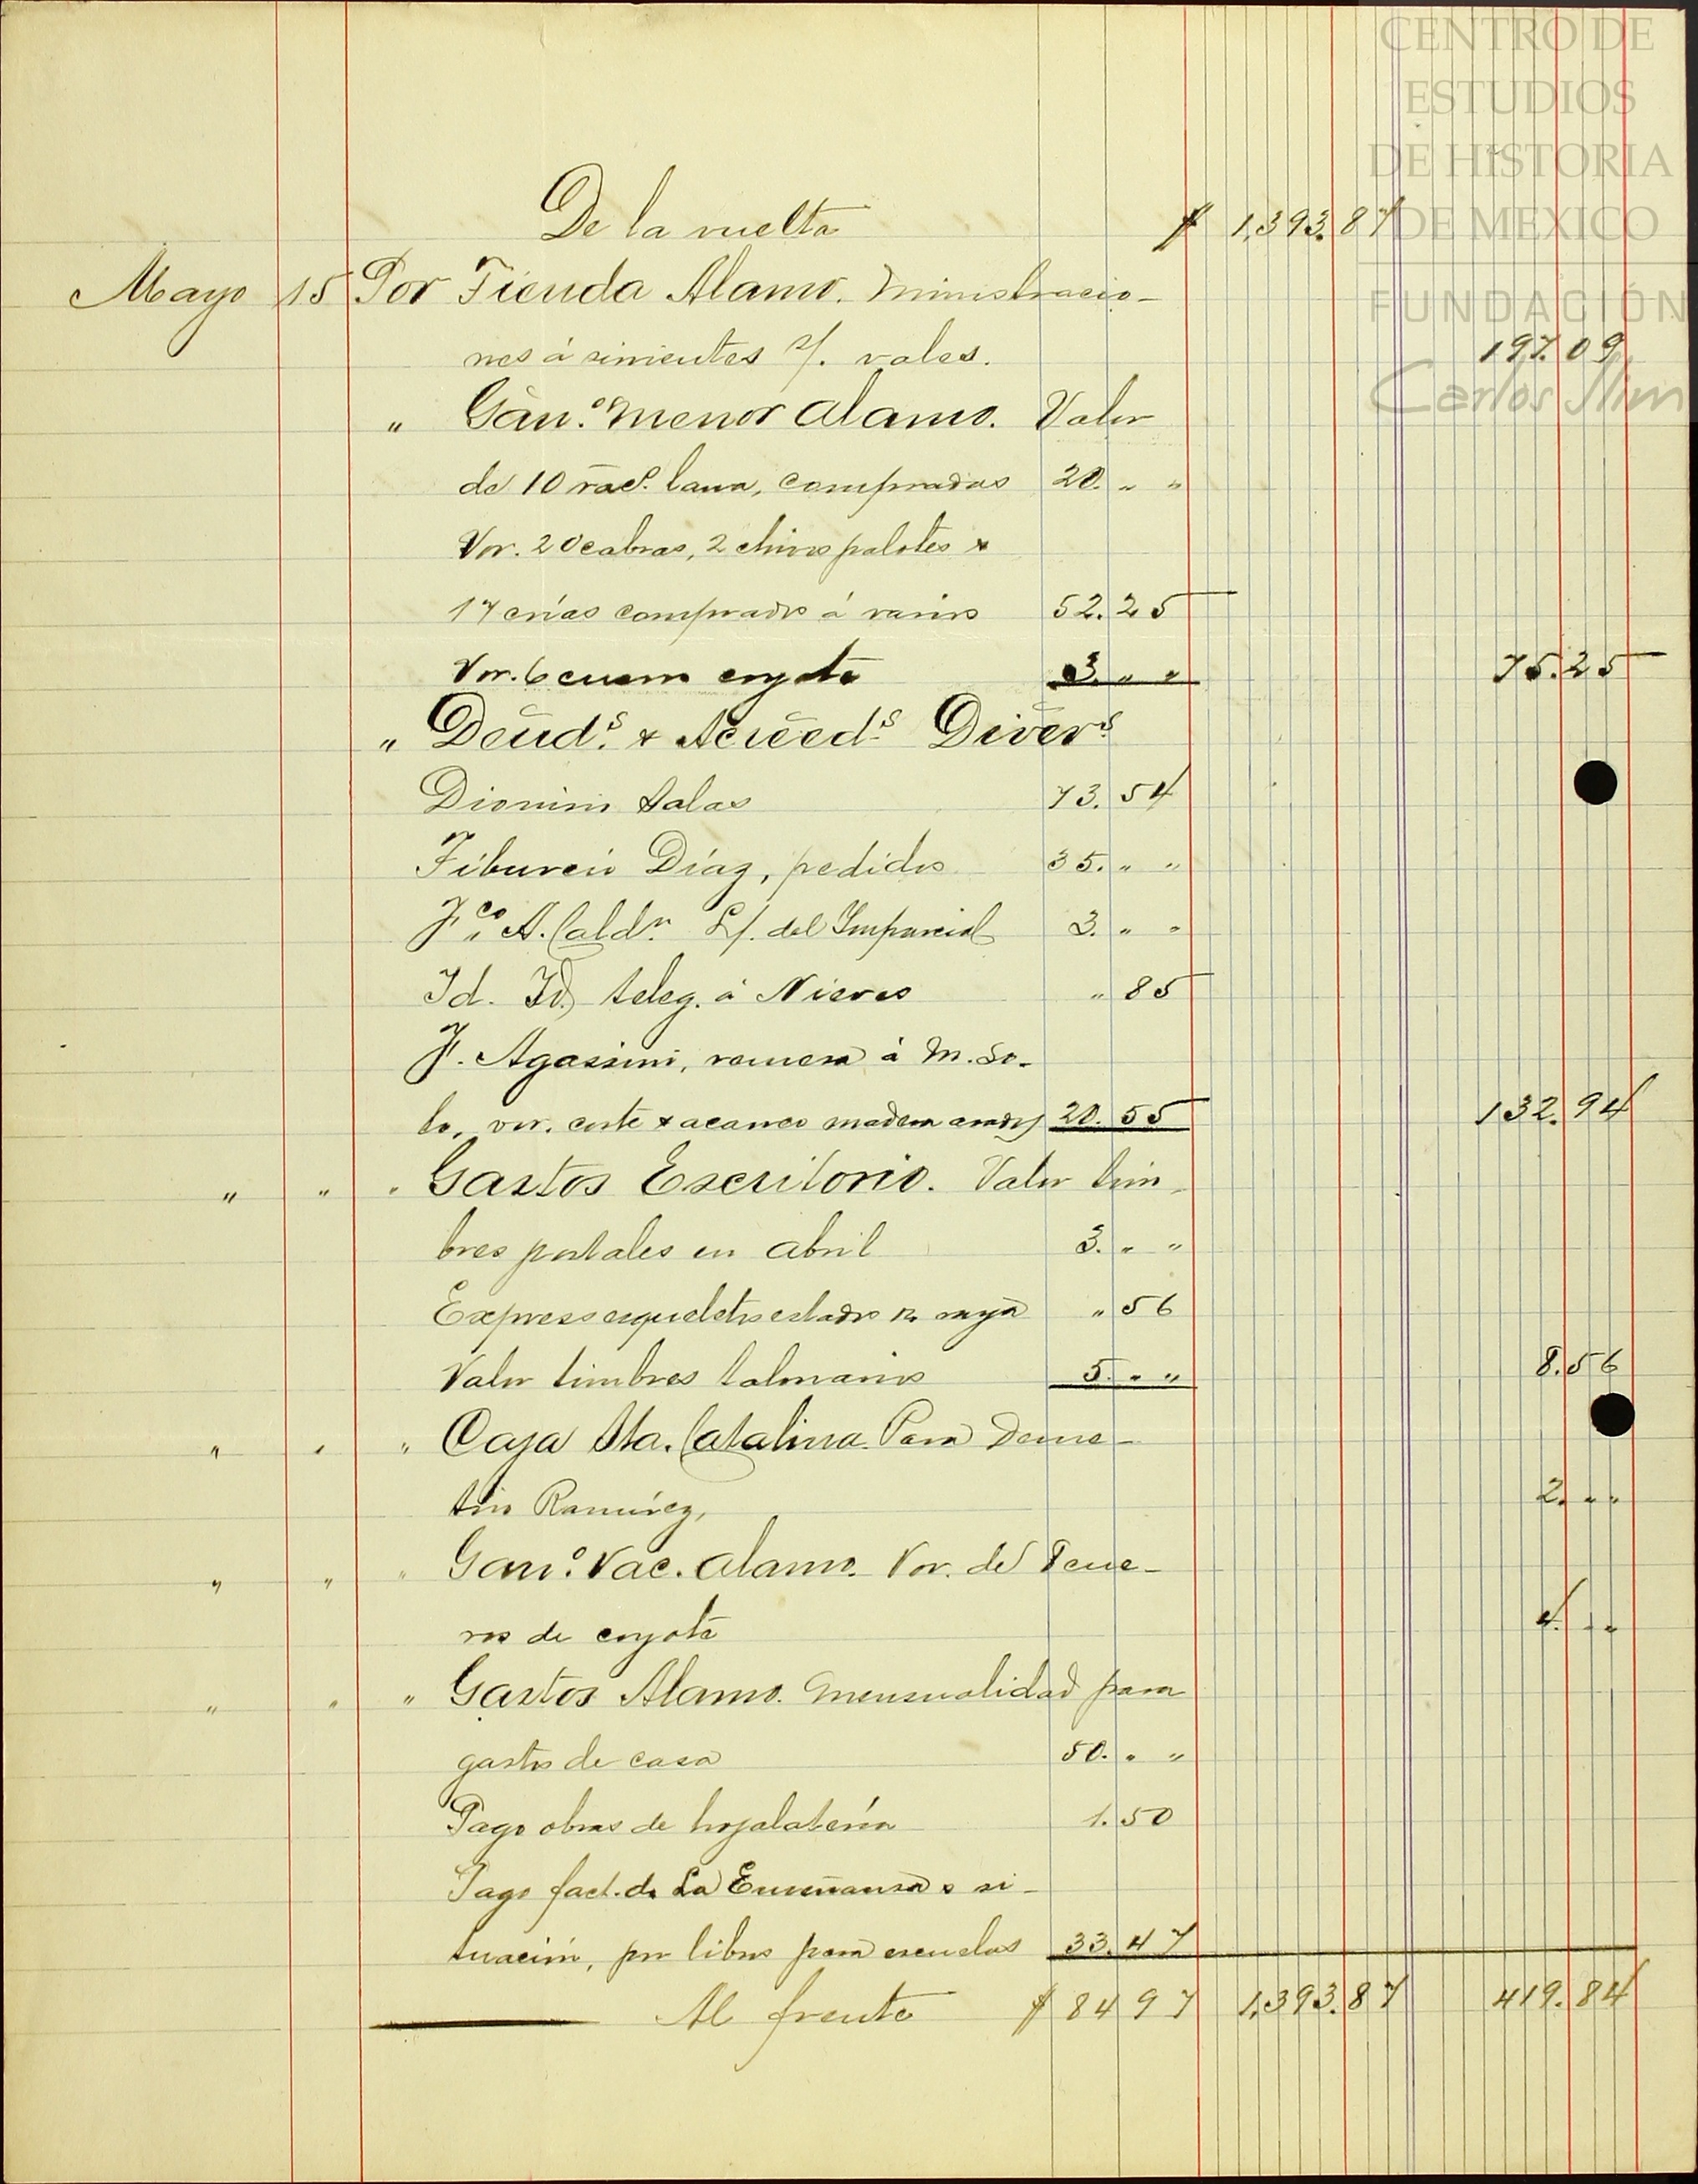 CENTRO DE
ESTUDIOS
DE HISTORIA
DE MEXICO
FUNDACIÓN
Carlos Slim
De la vuelta $ 1,393.87
Mayo 15 Por Tienda Alamo. Ministracio-
nes á sirvientes s/. vales. 197.09
" Gan.º menor Alamo. Valor
de 10 lana, compradas 20. " "
Vor. 20 cabras, 2 chivos palotes &
17 crías comprados á varios 52.25
Vor. 6 coyote 3. " " 75.25
" Deud.s & Acreed.s Divers
Dionisio Salas 73.54
Tiburcio Díaz, pedidos 35. " "
F.co A. Cald.n S/. del Imparcial 3. " "
Id. Id. teleg. á Nieves " 85
F. Agassini, remesa á M. So-
to, vor. corte & acarreo madera 20.55 132.94
" " " Gastos Escritorio. Valor tim-
bres postales en Abril 3. " "
Express esqueletos estados raya " 56
Valor timbres talonarios 5. " " 8.56
" " " Caja Sta. Catalina. Para Deme-
trio Ramírez, 2. " "
" " " Gan.º Vac. Alamo. Vor. de Tene-
ros de coyote 4. " "
" " " Gastos Alamo. Mensualidad para
gastos de casa 50. " "
Pago obras de hojalatería 1.50
Pago fact. de La Enseñansa & si-
tuación, por libros para escuelas 33.47
Al frente $ 84 97 1,393.87 419.84